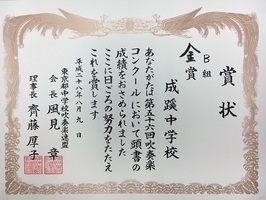 賞状
B組
金賞
成蹊中学校
あなたがたは第五十六回吹奏楽
コンクールにおいて頭書の
成績をおさめられました
ここに日ごろの努力をたたえ
これを賞します
平成二十八年八月九日
東京都中学校吹奏楽連盟
会長 風見章
理事長 齊藤厚子